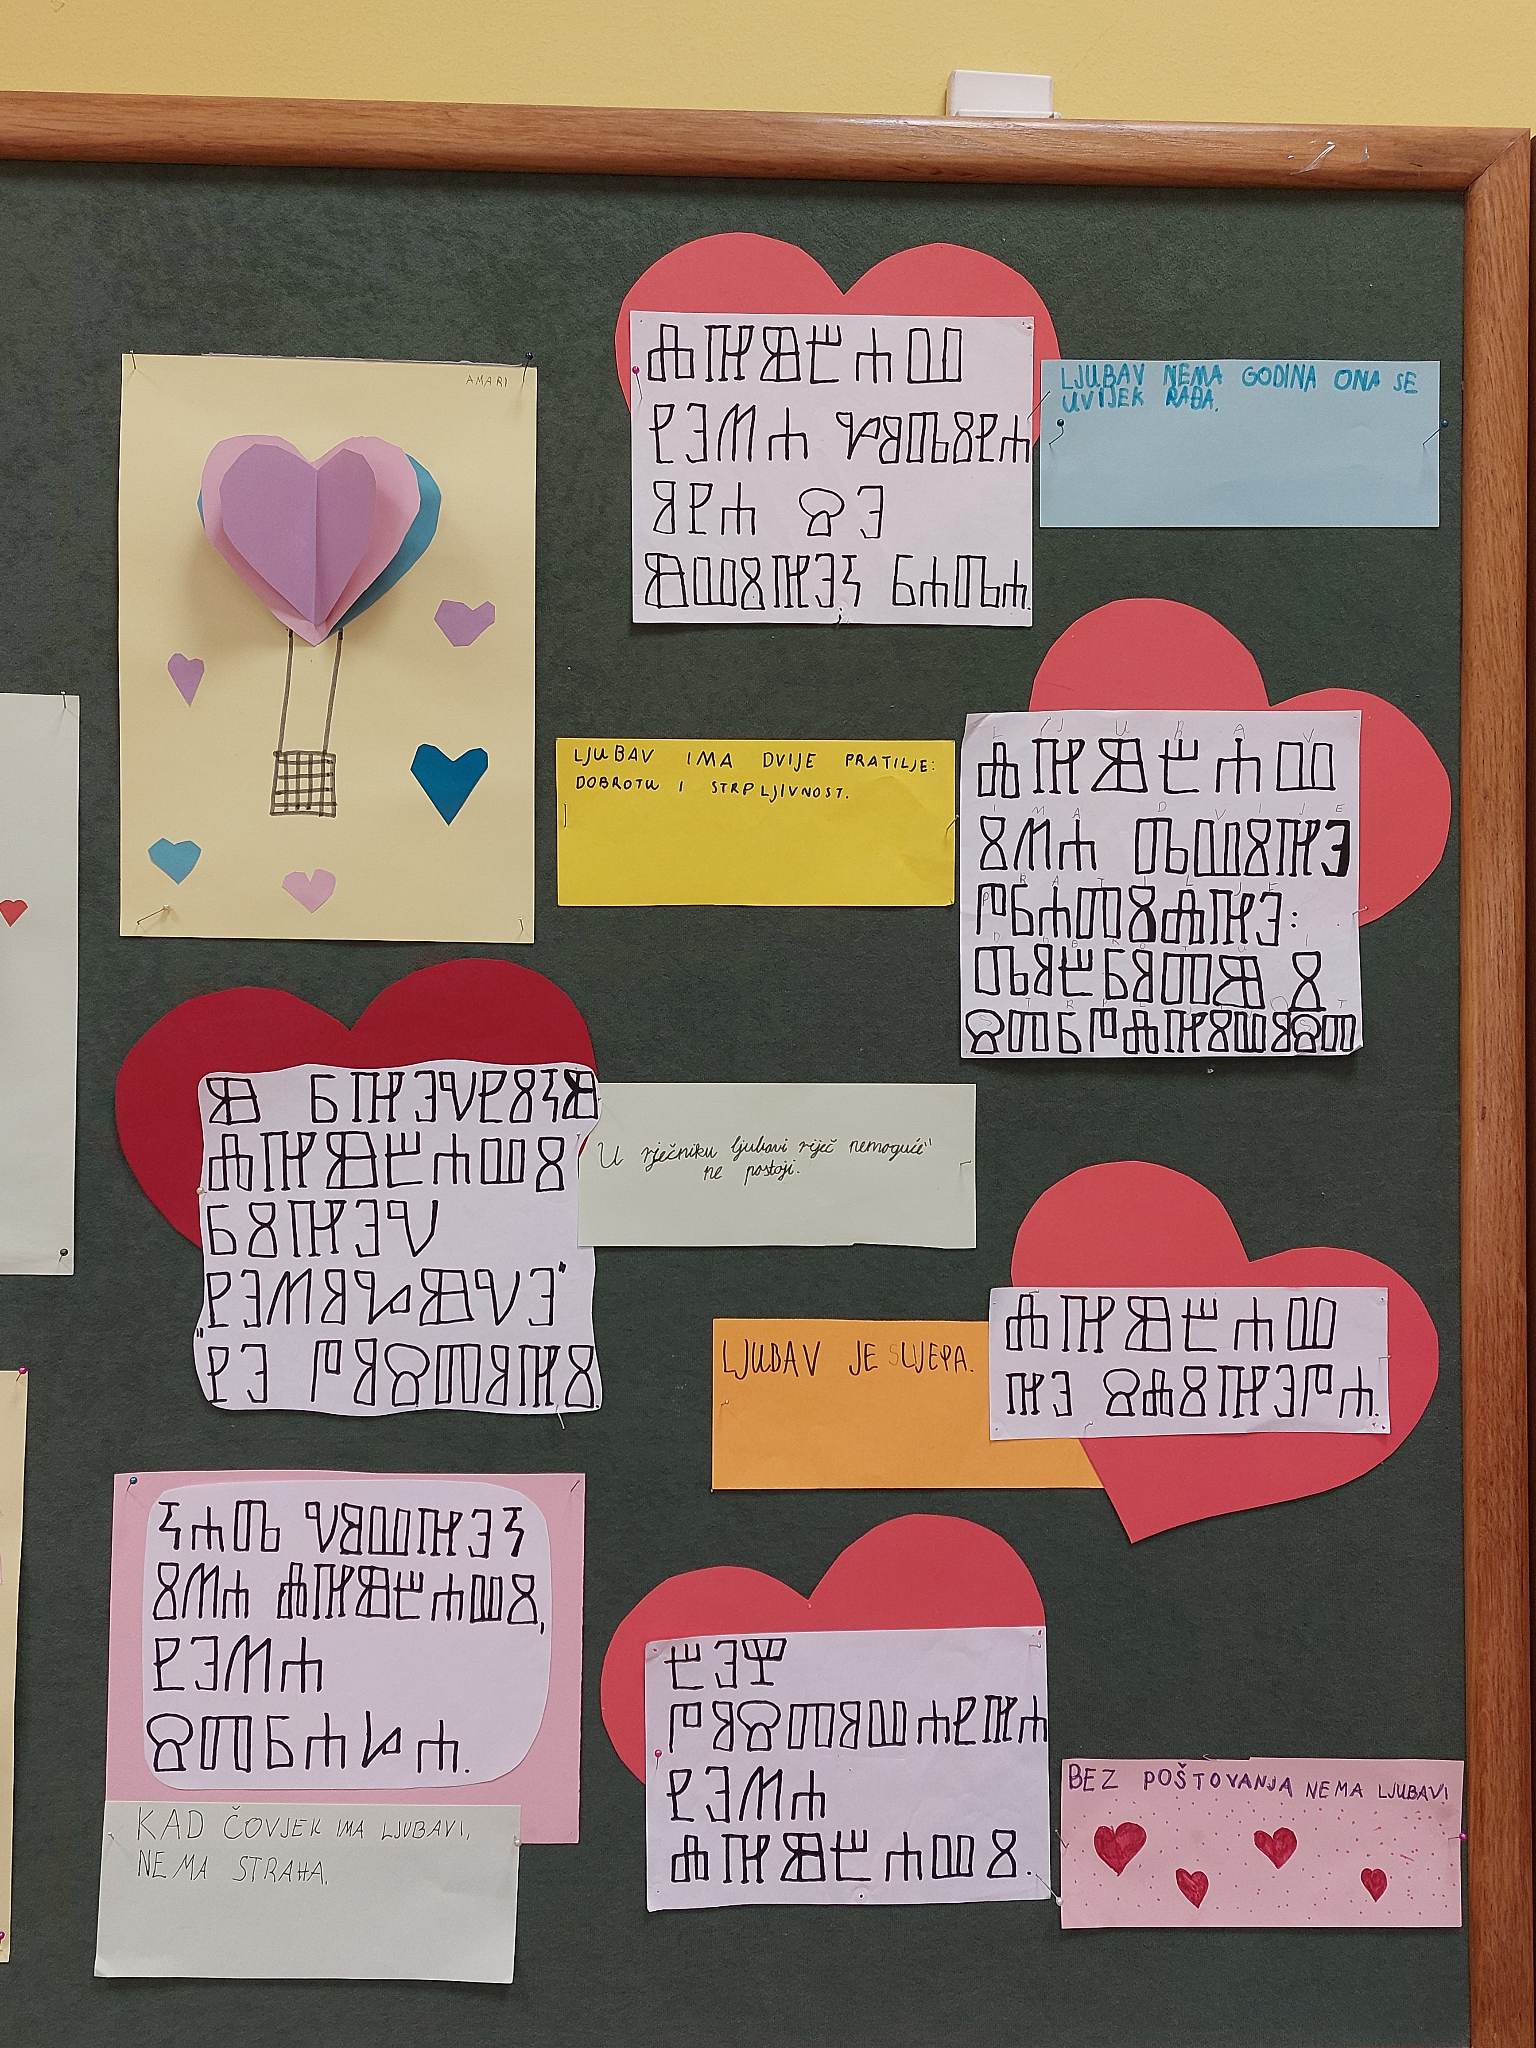 AMARI
ⰎⰌⰖⰁⰀⰂ
ⰐⰅⰮⰀ ⰃⰑⰄⰋⰐⰀ
ⰑⰐⰀ ⰔⰅ
ⰖⰂⰋⰌⰅⰍ ⰓⰀⰄⰀ.
LJUBAV NEMA GODINA ONA SE
UVIJEK RAĐA.
LJUBAV IMA DVIJE PRATILJE:
DOBROTU I STRPLJIVNOST.
ⰎⰌⰖⰁⰀⰂ
ⰋⰮⰀ ⰄⰂⰋⰌⰅ
ⰒⰓⰀⰕⰋⰎⰌⰅ:
ⰄⰑⰁⰓⰑⰕⰖ Ⰻ
ⰔⰕⰓⰒⰎⰌⰋⰂⰑⰔⰕ
Ⱆ ⰓⰌⰅⰝⰐⰋⰍⰖ
ⰎⰌⰖⰁⰀⰂⰋ
ⰓⰋⰌⰅⰝ
ⰐⰅⰮⰑⰃⰖⰝⰅ"
"ⰐⰅ ⰒⰑⰔⰕⰑⰌⰋ.
U rječniku ljubavi riječ nemoguće"
ne postoji.
LJUBAV JE SLIJEPA.
ⰎⰌⰖⰁⰀⰂ
ⰌⰅ ⰔⰎⰋⰌⰅⰒⰀ.
ⰍⰀⰄ ⰝⰑⰂⰌⰅⰍ
ⰋⰮⰀ ⰎⰌⰖⰁⰀⰂⰋ,
ⰐⰅⰮⰀ
ⰔⰕⰓⰀⰘⰀ.
KAD ČOVJEK IMA LJUBAVI,
NEMA STRAHA.
ⰁⰅⰈ
ⰒⰑⰔⰕⰑⰂⰀⰐⰌⰀ
ⰐⰅⰮⰀ
ⰎⰌⰖⰁⰀⰂⰋ.
BEZ POŠTOVANJA NEMA LJUBAVI